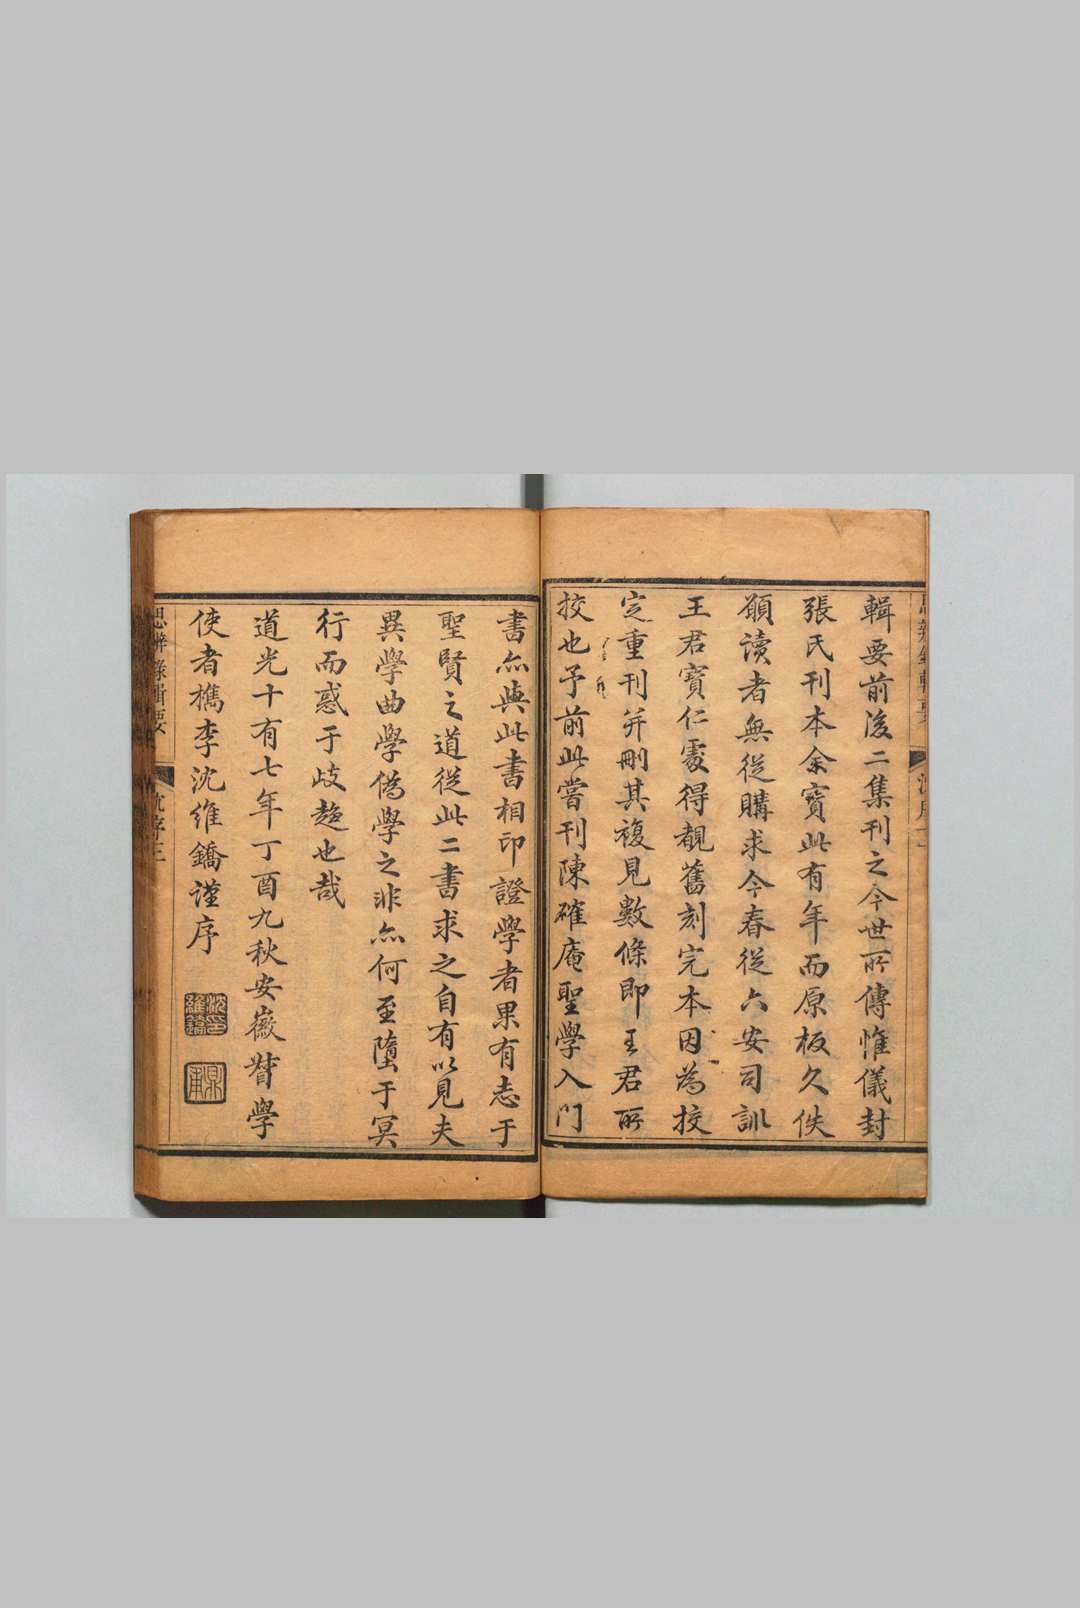 輯要前後二集刊之今世所傳惟儀封
張氏刊本余寶此有年而原板久佚
願讀者無從購求今春從六安司訓
王君寶仁處得覩舊刻完本因為挍
定重刊并刪其複見數條即王君所
挍也予前此嘗刊陳確庵聖學入門
書亦與此書相印證學者果有志于
聖賢之道從此二書求之自有以見夫
異學曲學偽學之非亦何至墮于冥
行而惑于歧趨也哉
道光十有七年丁酉九秋安徽督學
使者檇李沈維鐈謹序
沈印維鐈
鼎甫
思辨錄輯要
沈序三